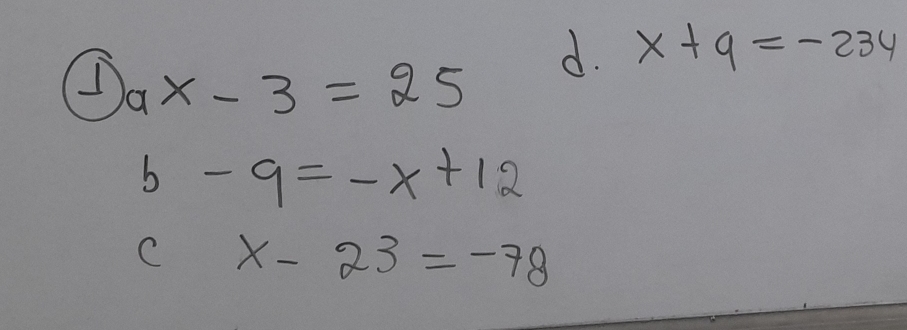 ① a x - 3 = 25
b - 9 = -x + 12
c x - 23 = -78
d. x + 9 = -234